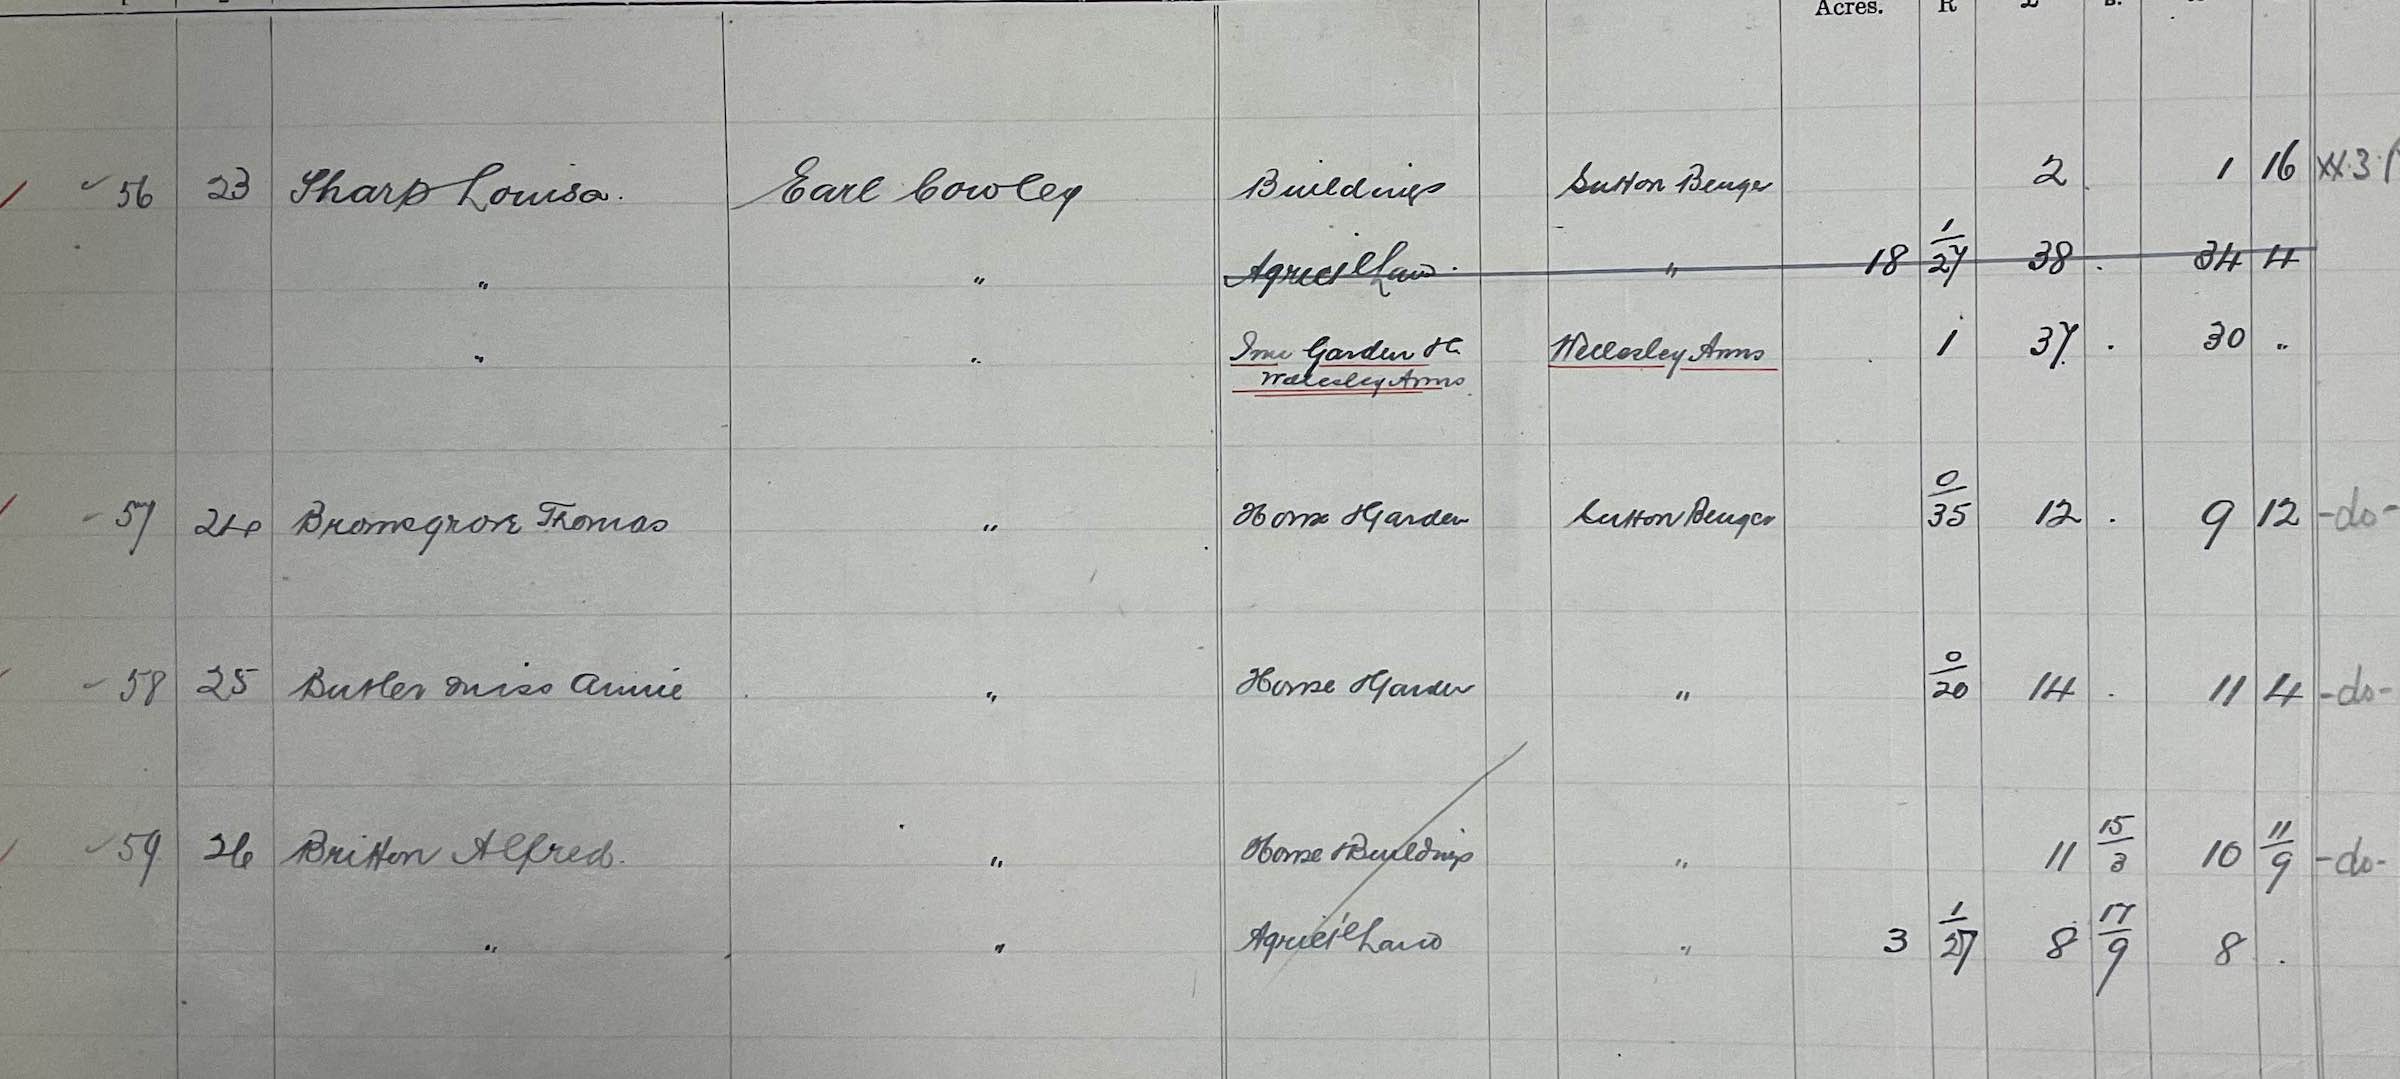 Acres. R £ s.
56 23 Sharp Louisa. Earl Cowley Buildings Sutton Benger 2 . 1 16 xx.3
" " Agricl Land " 18 1/27 38 . 34 4
" " Inn Garden &c Wellesley Arms 1 37 . 30 "
Wellesley Arms
57 24 Bromsgrove Thomas " House & Garden Sutton Benger 0/35 12 . 9 12 -do-
58 25 Butler Miss Annie " House & Garden " 0/20 14 . 11 4 -do-
59 26 Britton Alfred. " House & Buildings " 11 15/3 10 11/9 -do-
" " Agricl Land " 3 1/27 8 17/9 8 .